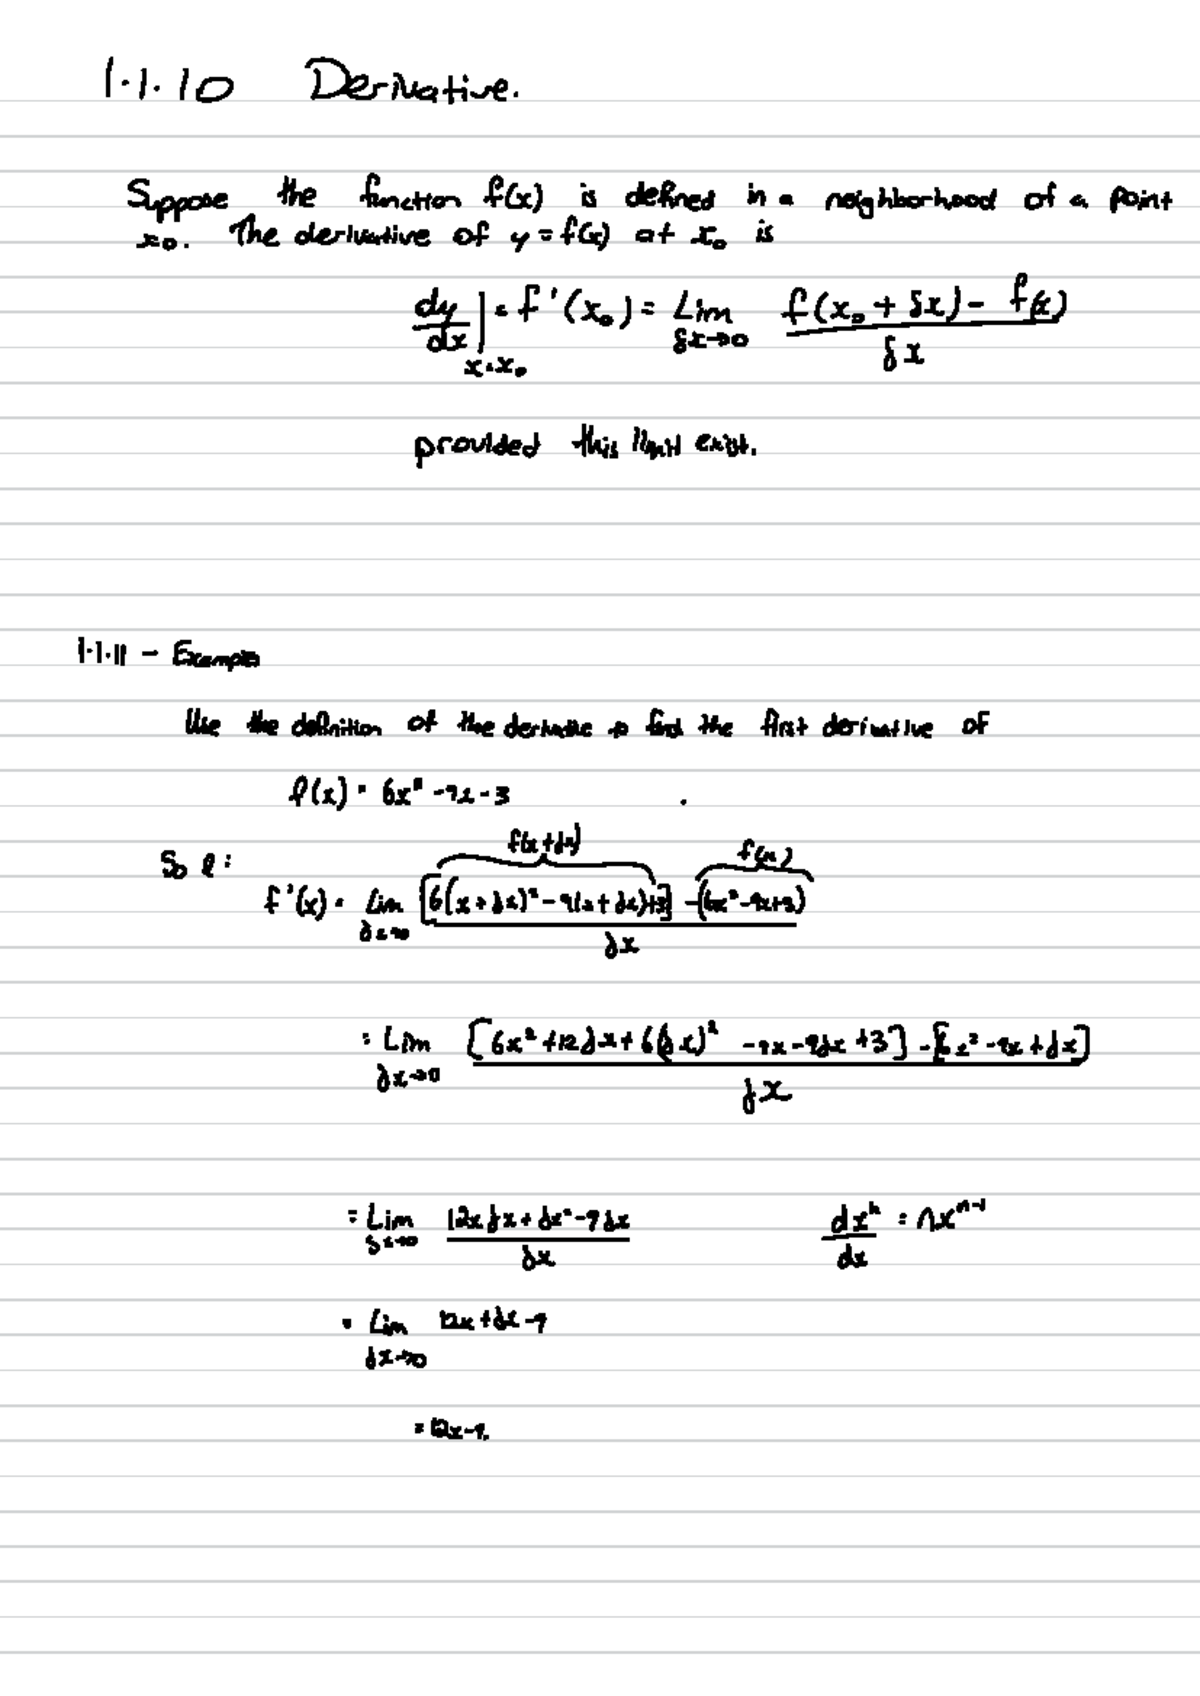 1.1.10 Derivative.
Suppose the function f(x) is defined in a neighborhood of a point
x0. The derivative of y = f(x) at x₀ is
dy/dx |x=x₀ = f'(x₀) = Lim δx→0 (f(x₀ + δx) - f(x))/δx
provided this limit exist.
1.1.11 - Examples
Use the definition of the derivative to find the first derivative of
f(x) = 6x² - 9x - 3
So l:
f(x+δx) f(x)
f'(x) = Lim δx→0 ([6(x+δx)² - 9(x+δx)+3] - (6x² - 9x+3))/δx
= Lim δx→0 ([6x² + 12δx + 6(δx)² - 9x - 9δx + 3] - [6x² - 9x + δx])/δx
= Lim δx→0 (12xδx + δx² - 9δx)/δx dxⁿ/dx = nxⁿ⁻¹
= Lim δx→0 12x + δx - 9
= 12x - 9.